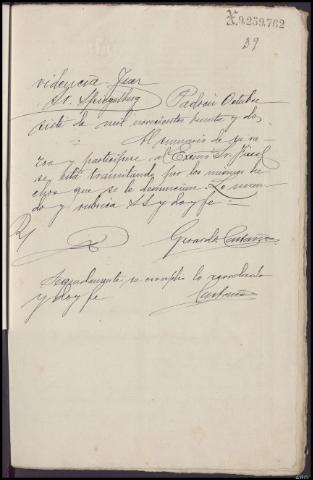 X.9.259.762
39
videncia. Juez
Sr. Spiegelberg Padrón Octubre
siete de mil novecientos treinta y dos
Al sumario de su ra-
zón y participese al Excmo Sr. Fiscal
se está tramitando por los mismos he-
chos que se le denuncian. Lo man-
da y rubrica SSª y doy fe =
Gerardo Castaño
Seguidamente, se cumplió lo acordado
y doy fe
Castaño